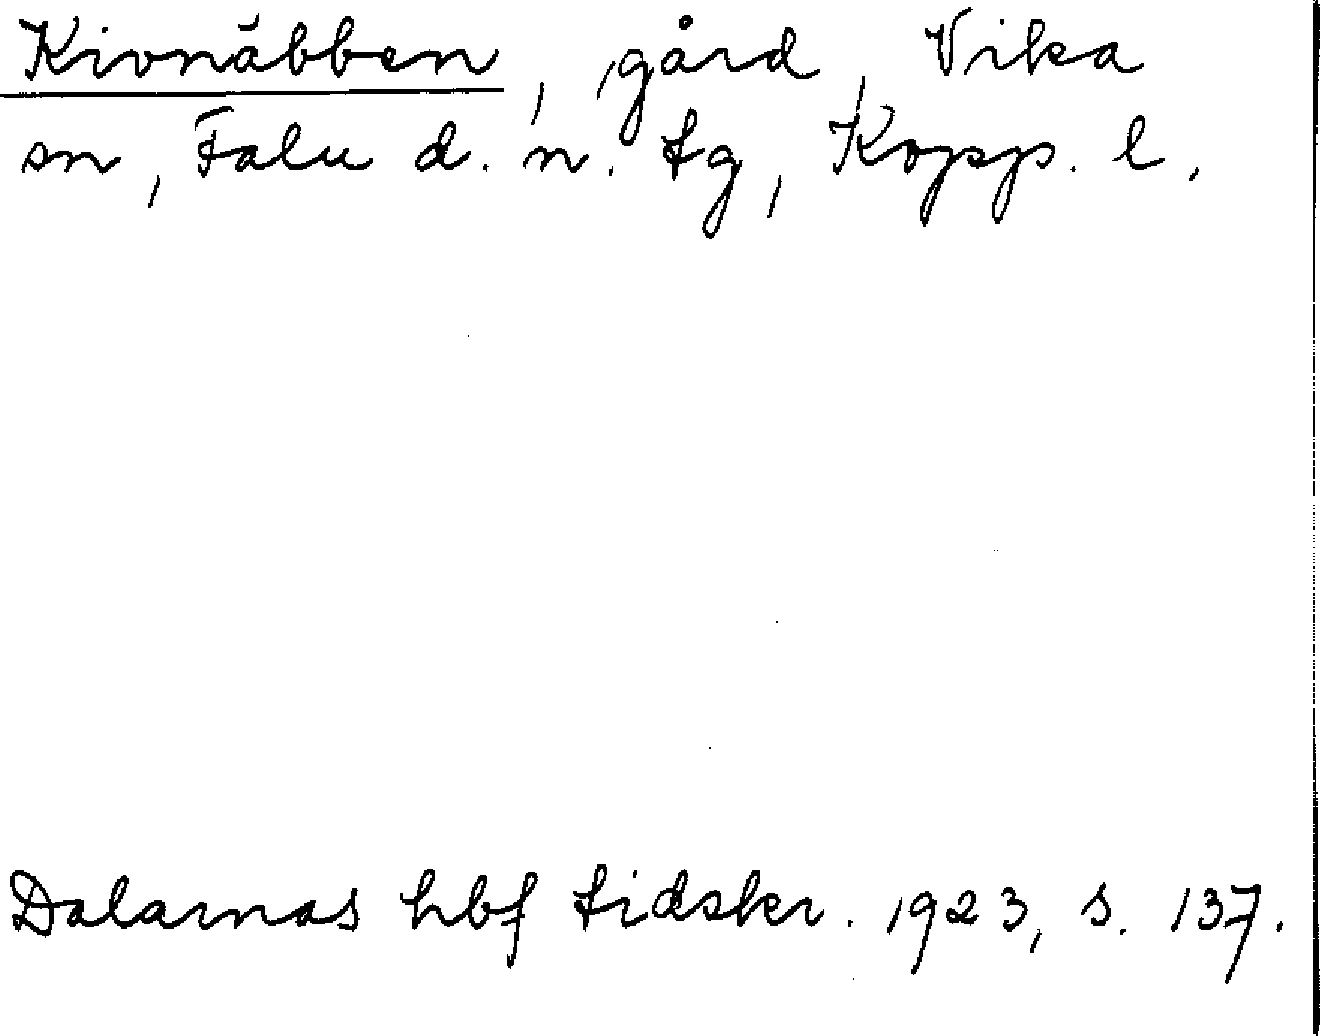 Kivnäbben, gård, Vika
sn, Falu d. n. tg, Kopp. l.
Dalarnas hbf tidskr. 1923, s. 137.